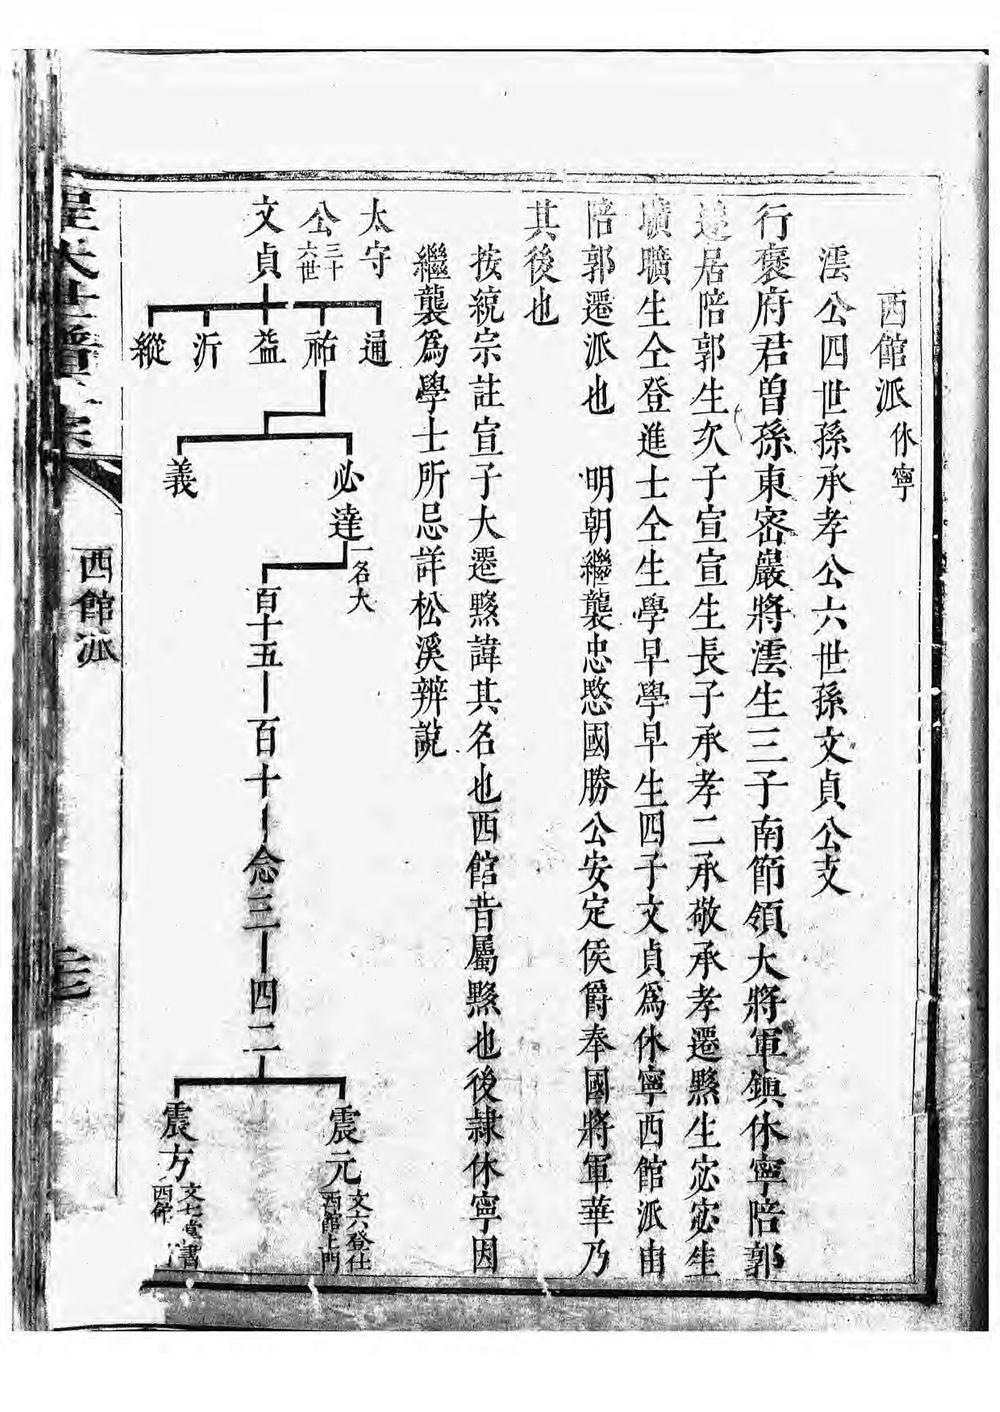 西館派休寧
澐公四世孫承孝公六世孫文貞公支
行褒府君曽孫東密嚴將澐生三子南節領大將軍鎮休寧陪郭
遂居陪郭生次子宣宣生長子承孝二承敬承孝遷黟生宓宓生
壙壙生仝登進士仝生學早學早生四子文貞為休寧西館派由
陪郭遷派也　明朝繼襲忠愍國勝公安定侯爵奉國將軍華乃
其後也
按統宗註宣子大遷黟諱其名也西館昔屬黟也後隷休寧因
繼襲為學士所忌詳松溪辨說
太守
公三十六世
文貞
通
祐
益
沂
縱
必達一名大
義
百十五
百十
念三
四二
震元文六登仕西館上門
震方
西館派